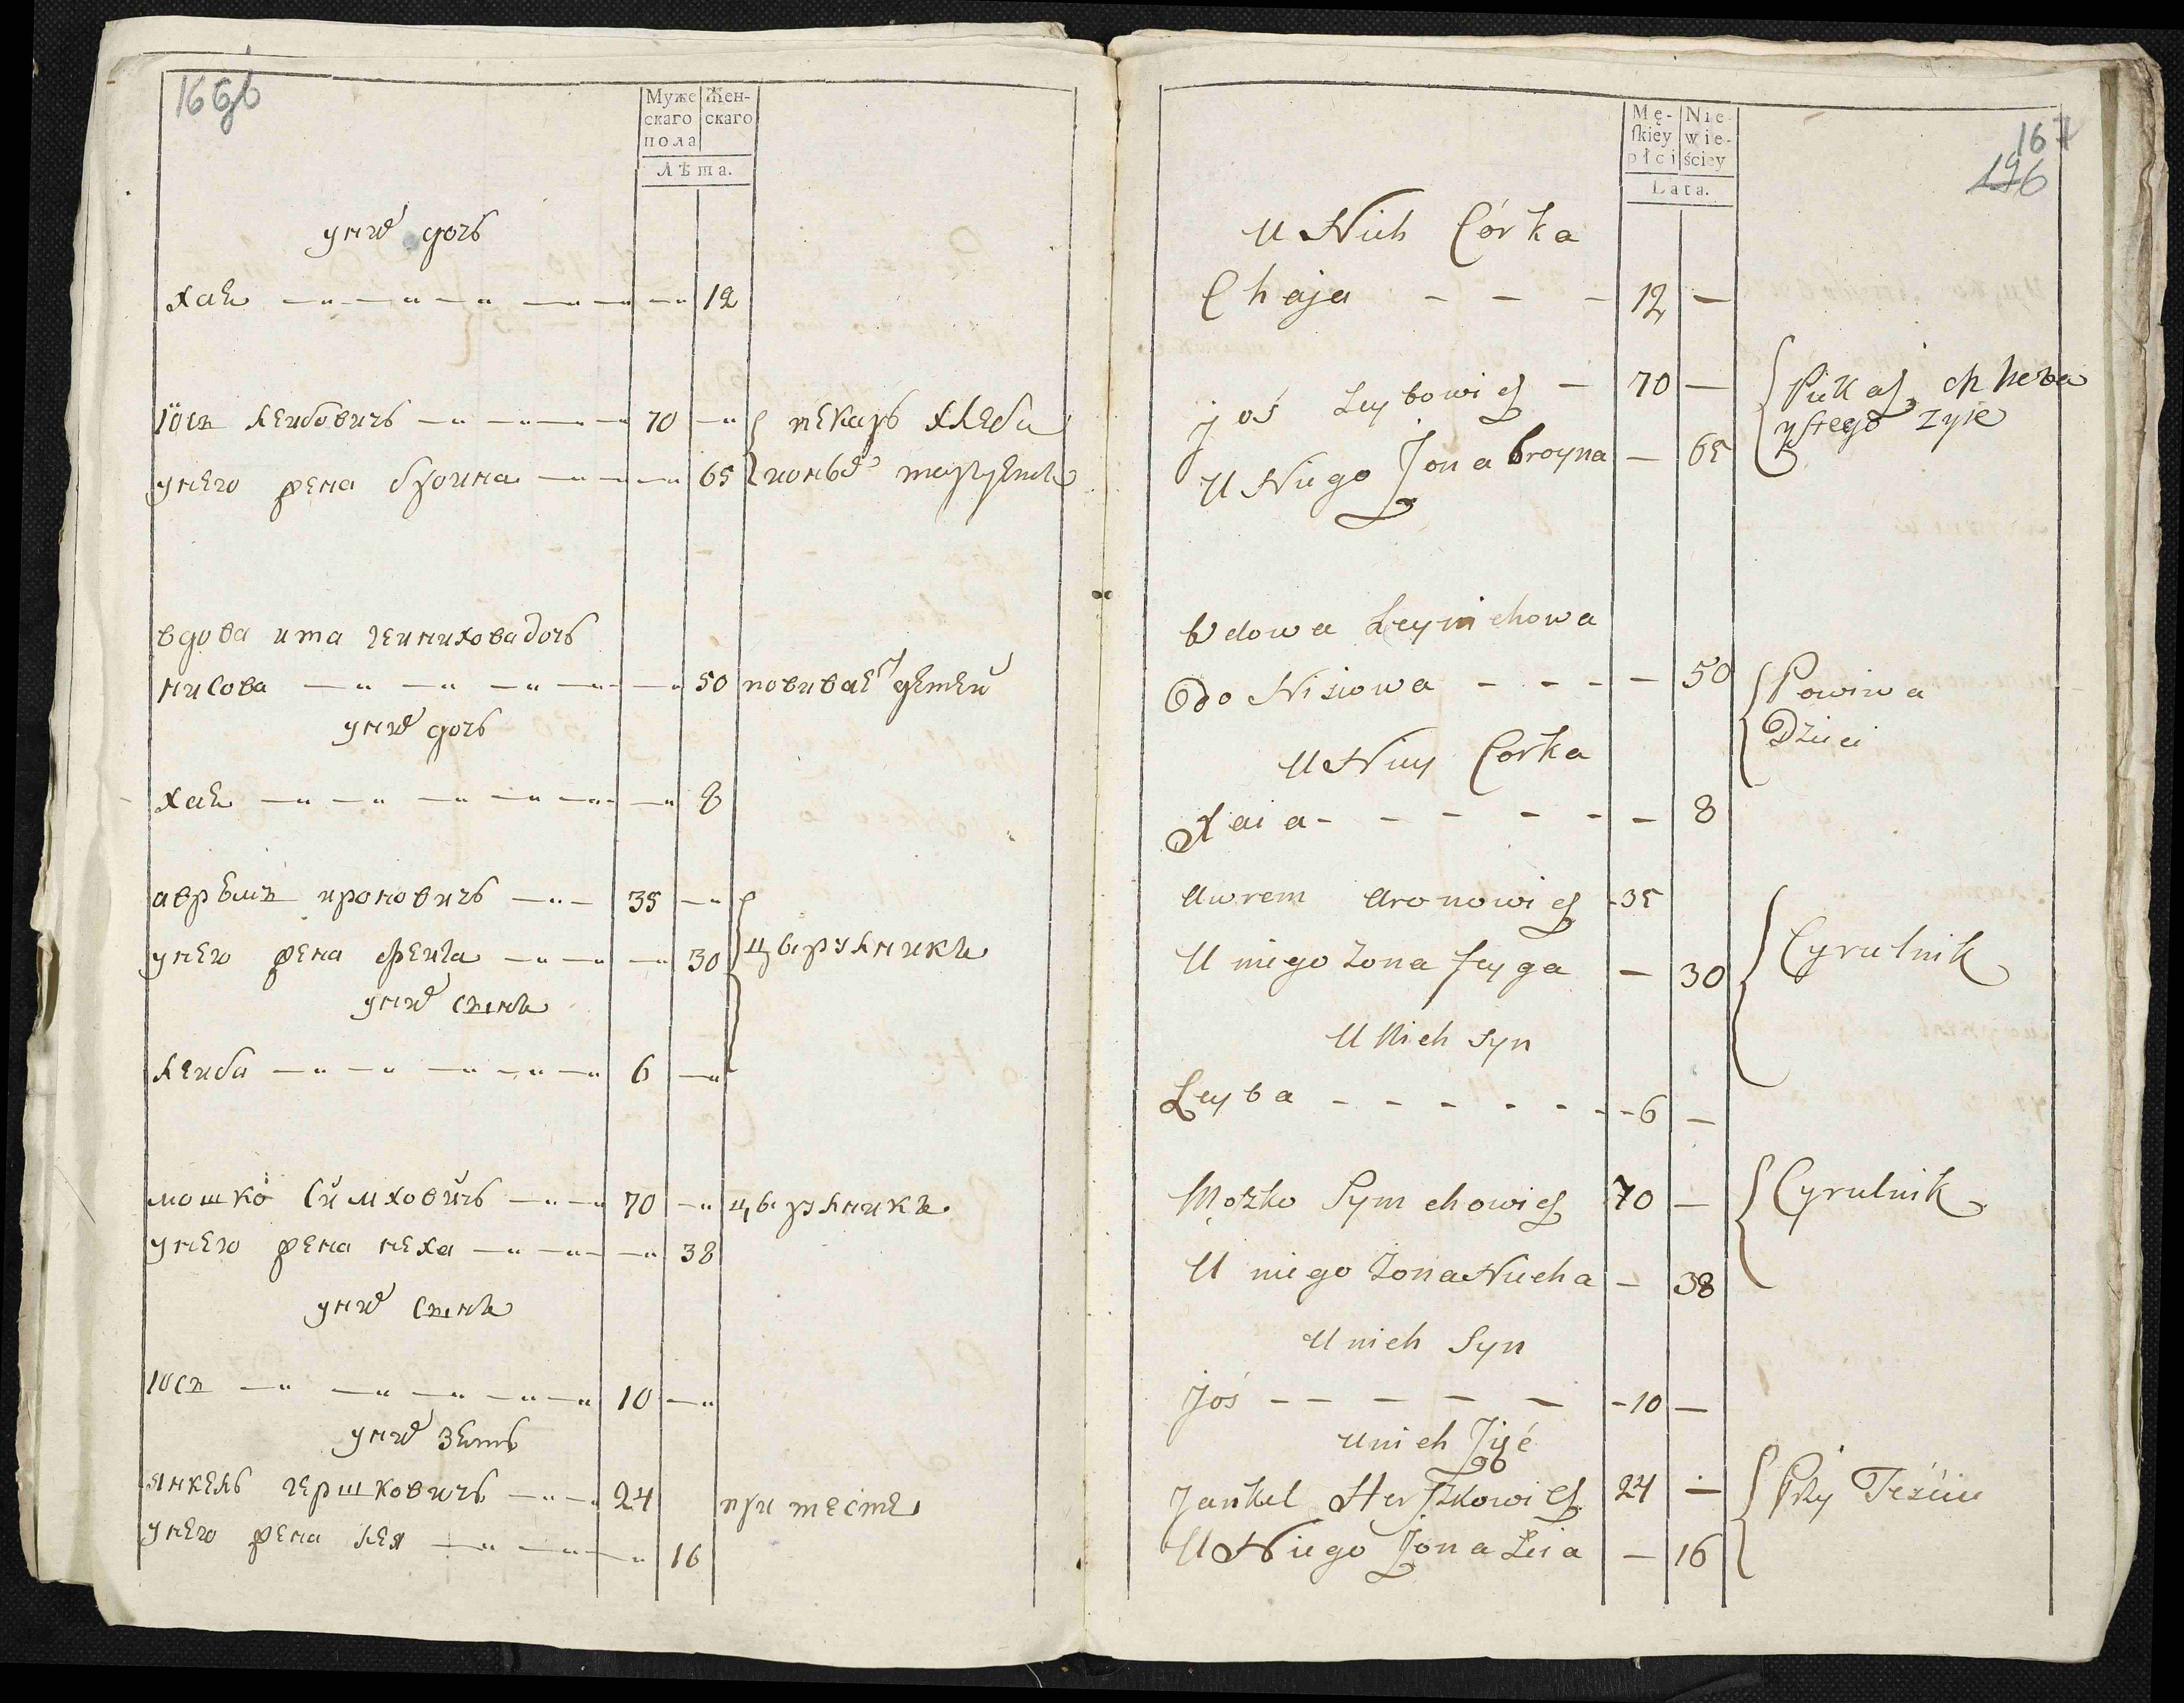 166b
Муже
скаго
пола
Жен-
скаго
Лѣта.
у них дочь
хая 12
Iось леибовичъ 70
у него жена броина 65
пекарь хлеба
и оным торгуетъ
вдова ита геиниховадочь
нисова 50 повивает детей
у них дочь
хая 8
аврѣмъ ироновичъ 35
у него жена феига 30
цырулникъ
у них сынъ
леиба 6
мошко симховичъ 70 цырулникъ
у него жена неха 38
у них сынъ
юсъ 10
у них зять
янкель гершковичъ 24 при тесте
у него жена лея 16
167
196
Mę-
ſkiey
płci
Nie-
wie-
ściey
Lata.
U Nich Córka
Chaja - - - 12 -
joś Leybowicz - 70 -
U Niego Żona broyna - 65
Piekarz chleba
y stego zyie
Wdowa Leymchowa
Odo Nisiowa - - - - 50
Powiwa
Dzieci
U Niey Corka
Xaia - - - - - - 8
Awrem Aronowicz - 35
U niego Zona feyga - 30
Cyrulnik
U Nich Syn
Leyba - - - - - - 6 -
Moszko Symchowicz 70 -
Cyrulnik
U niego Zona Niecha - 38
U nich Syn
joś - - - - - - 10 -
U nich Zięć
Jankel Herszkowicz 24 -
Przy Teściu
U Niego Żona Leia - 16